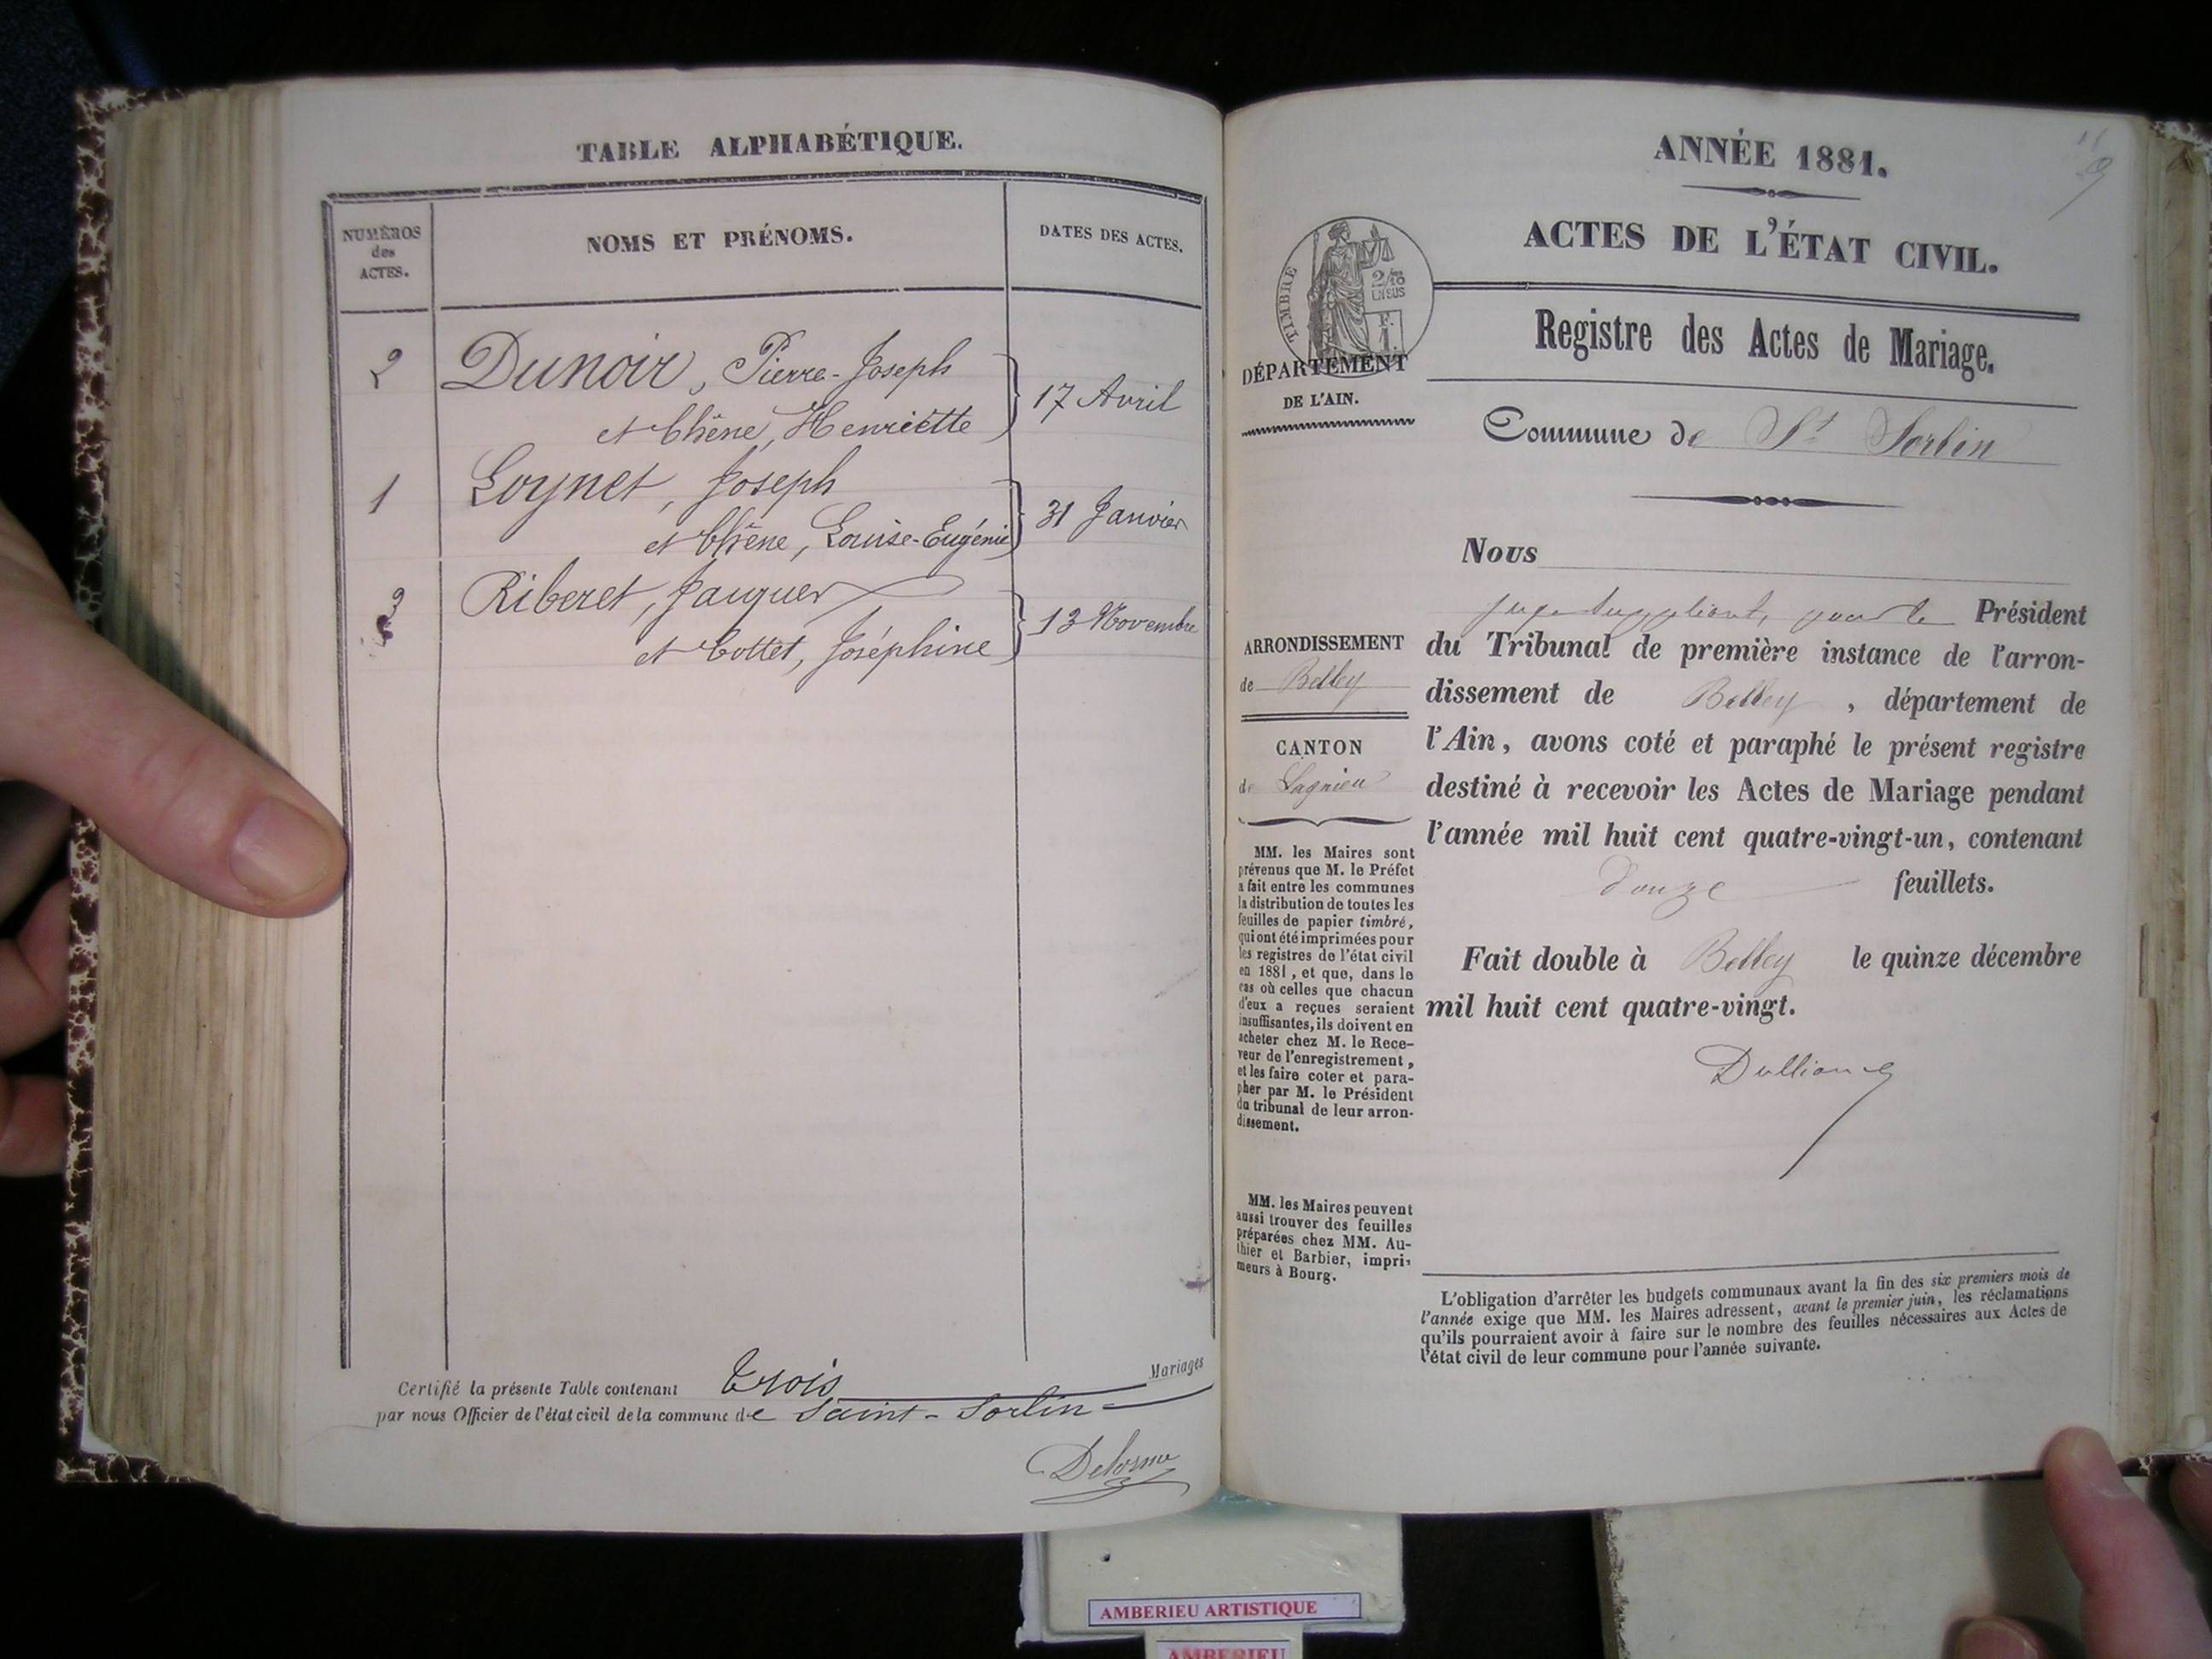 TABLE ALPHABÉTIQUE.
NUMÉROS
des
ACTES.
NOMS ET PRÉNOMS.
DATES DES ACTES.
2 Dunoir, Pierre-Joseph
et Chêne, Henriette
17 Avril
1 Loynet, Joseph
et Chêne, Louise-Eugénie
31 Janvier
3 Riberet, Jacques
et Cottet, Joséphine
13 Novembre
Certifié la présente Table contenant trois Mariages
par nous Officier de l'état civil de la commune de Saint-Sorlin
Delorme
ANNÉE 1881.
ACTES DE L'ÉTAT CIVIL.
TIMBRE
2/10
EN SUS
F.
1.
DÉPARTEMENT
DE L'AIN.
Registre des Actes de Mariage.
Commune de St Sorlin
Nous
juge suppléant, pour le Président
du Tribunal de première instance de l'arron-
dissement de Belley, département de
l'Ain, avons coté et paraphé le présent registre
destiné à recevoir les Actes de Mariage pendant
l'année mil huit cent quatre-vingt-un, contenant
douze feuillets.
Fait double à Belley le quinze décembre
mil huit cent quatre-vingt.
ARRONDISSEMENT
de Belley
CANTON
de Lagnieu
MM. les Maires sont
prévenus que M. le Préfet
a fait entre les communes
la distribution de toutes les
feuilles de papier timbré,
qui ont été imprimées pour
les registres de l'état civil
en 1881, et que, dans le
cas où celles que chacun
d'eux a reçues seraient
insuffisantes, ils doivent en
acheter chez M. le Rece-
veur de l'enregistrement,
et les faire coter et para-
pher par M. le Président
du tribunal de leur arron-
dissement.
MM. les Maires peuvent
aussi trouver des feuilles
préparées chez MM. Au-
thier et Barbier, impri-
meurs à Bourg.
L'obligation d'arrêter les budgets communaux avant la fin des six premiers mois de
l'année exige que MM. les Maires adressent, avant le premier juin, les réclamations
qu'ils pourraient avoir à faire sur le nombre des feuilles nécessaires aux Actes de
l'état civil de leur commune pour l'année suivante.
AMBERIEU ARTISTIQUE
AMBERIEU